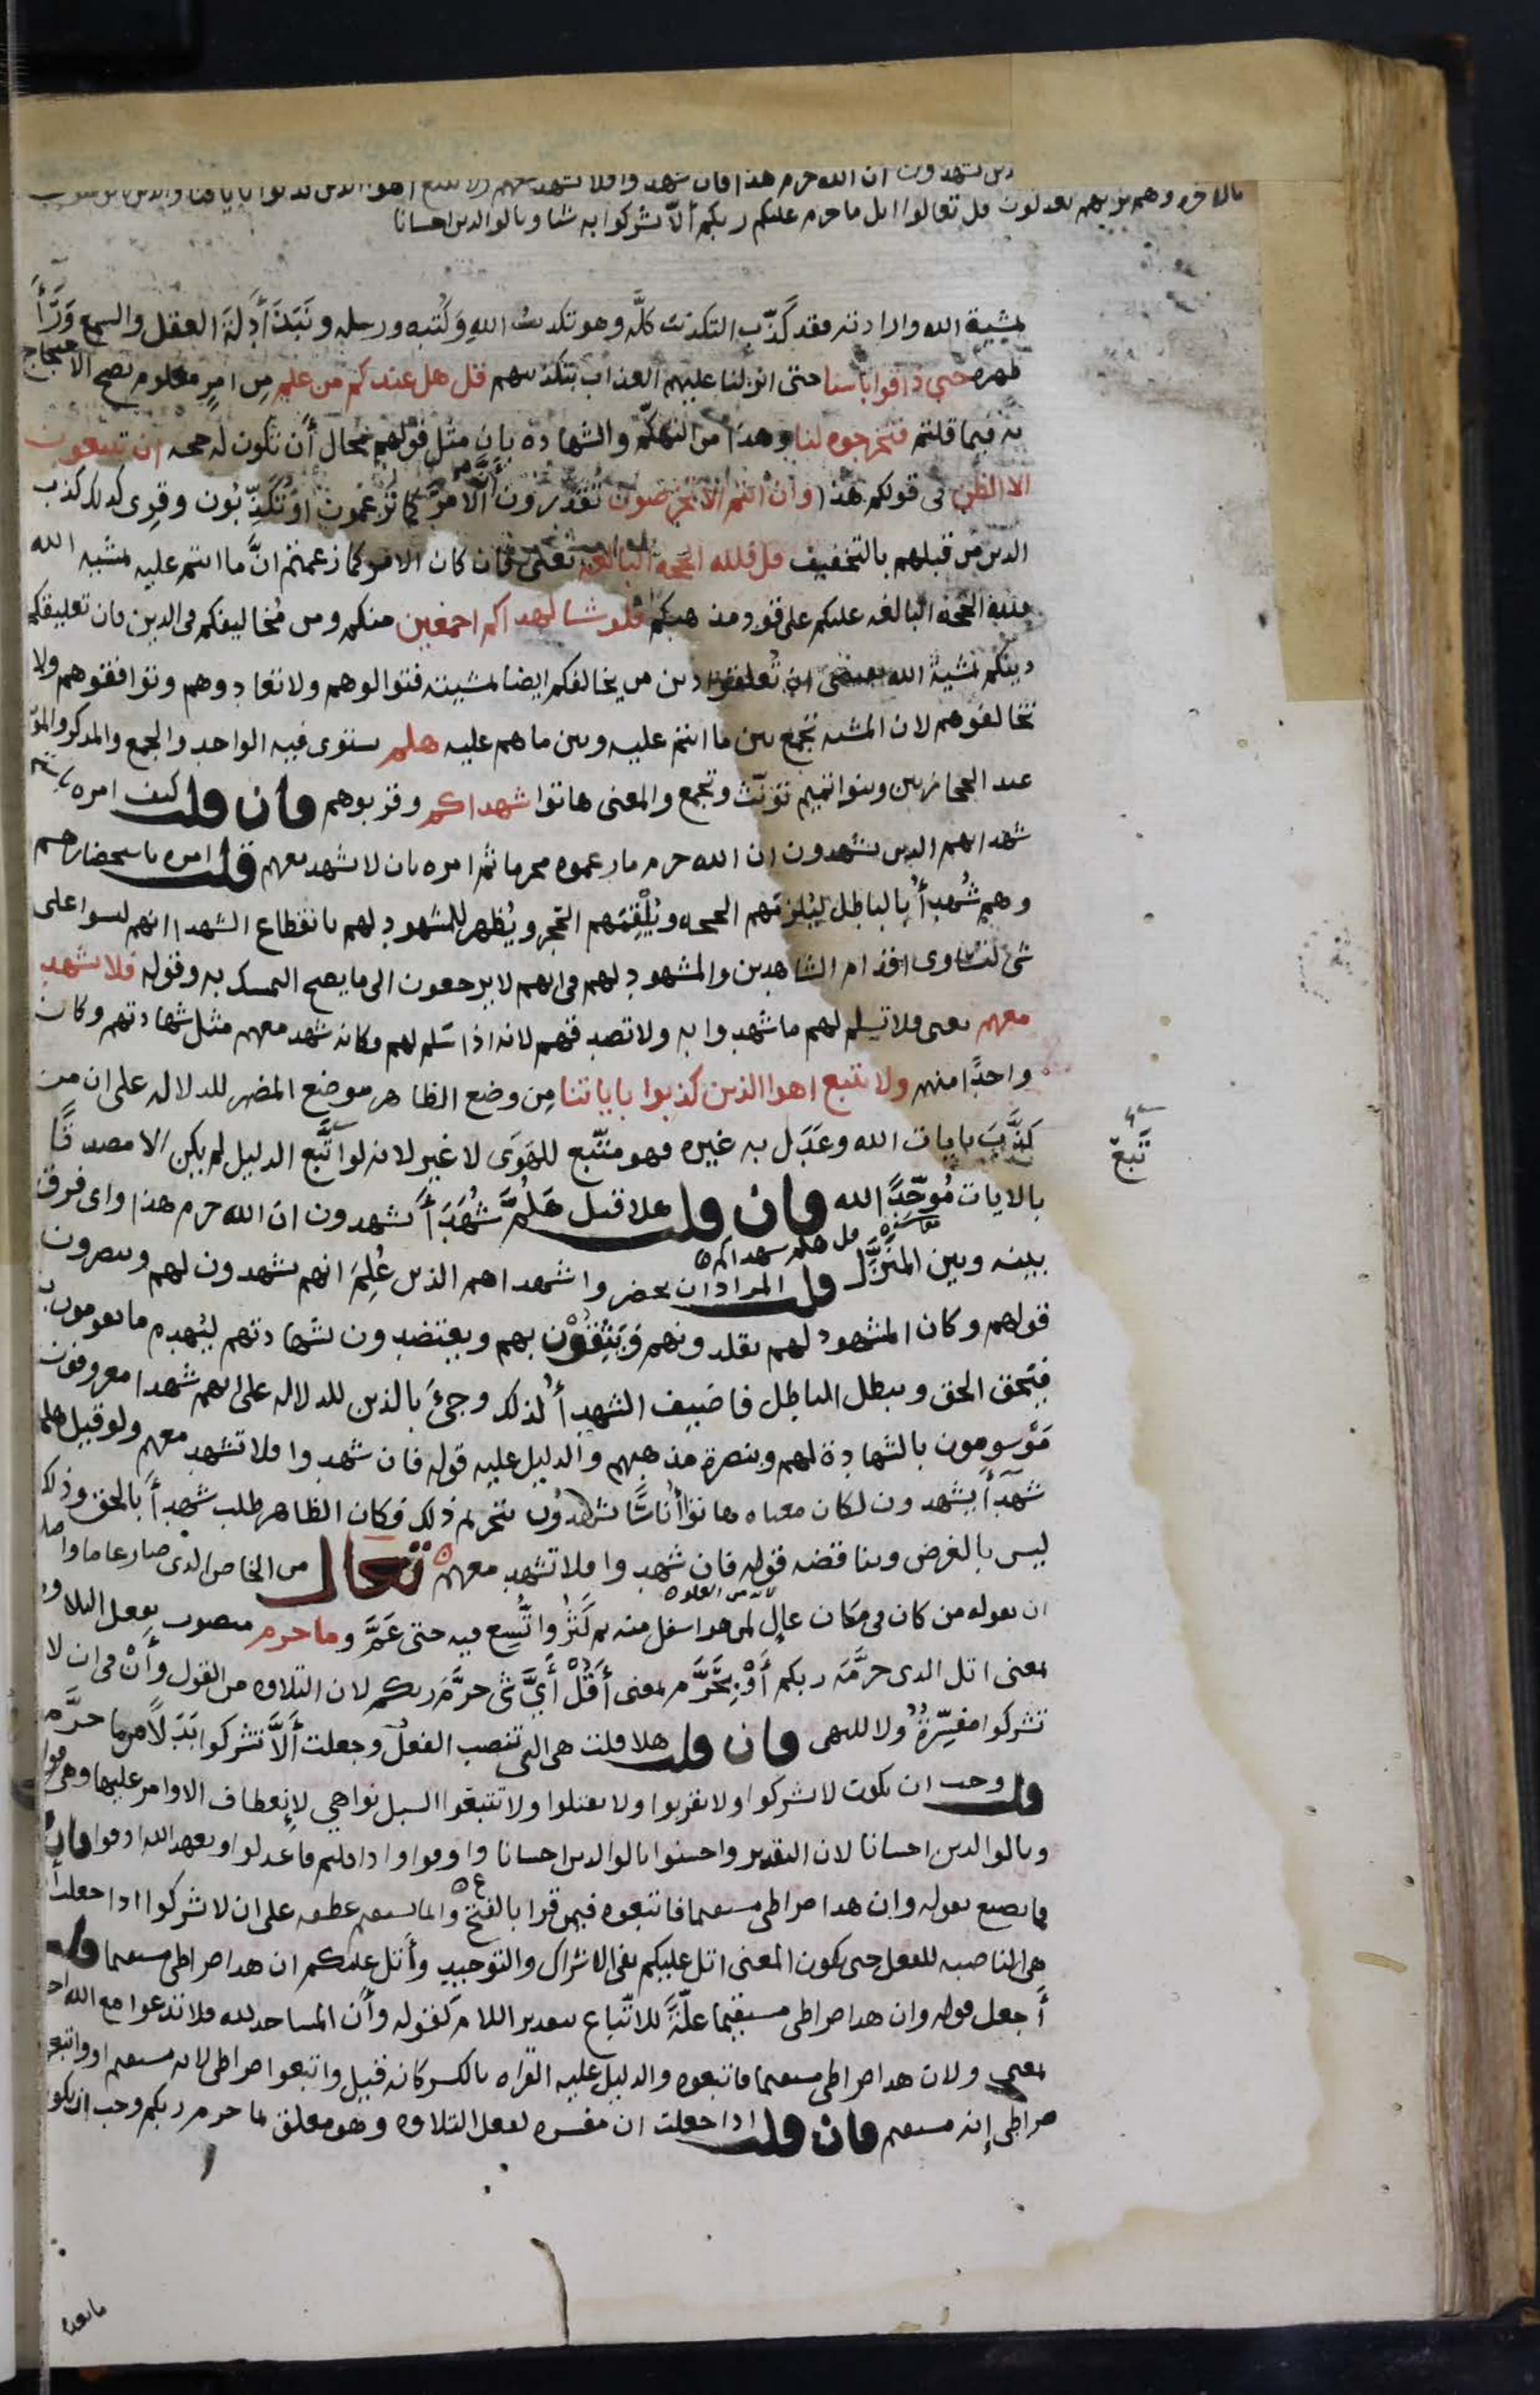 الذين يشهدون ان الله حرم هذا فان شهدوا فلا تشهد معهم ولا تتبع اهوا الذين كذبوا باياتنا والذين لا يومنون
بالاخره وهم بربهم يعدلون قل تعالوا اتل ما حرم عليكم ربكم ألّا تشركوا به شيا وبالوالدين احسانا
بمشيه الله وارادته فقد كَذَّب التكذيب كلَّه وهو تكذيب اللهِ وَكُتبه ورسله ونَبَذَ أَدِلةَ العقل والسمع وَرَأَ
ظهره حتى ذاقوا باسنا حتى انزلنا عليهم العذاب بتكذيبهم قل هل عندكم من علم مِن امرٍ معلوم يصح الاحتجاج
به فيما قلتم فتخرجوه لنا وهذا من التهكّم والشهادة بان مثل قولهم محال أَن تكون له حجه ان تتبعون
الا الظن فى قولكم هذا وان انتم الا تخرصون تُقَدّرون أَنَّ الامرَ كما تزعمون او تُكَذّبُون وقرِى كذلك كذب
الذين من قبلهم بالتخفيف قل فلله الحجه البالغه يعنى فان كان الامر كما زعمتم انَّ ما انتم عليه بمشيه الله
فلله الحجه البالغه عليكم على قود مذهبكم فلو شا لهداكم اجمعين منكم ومن مُخالِفيكم فى الدين فان تعليقكم
دينكم بمشيه الله يقتضى ان تُعلقوا دين من يخالفكم ايضا بمشيته فتوالوهم ولا تعادوهم وتوافقوهم ولا
تخالفوهم لان المشيه تجمع بين ما انتم عليه وبين ما هم عليه هلم يستوى فيه الواحد والجمع والمذكر والمؤنث
عند الحجازيين وبنوا تميم تؤنّث وتجمع والمعنى هاتوا شهداكم وقربوهم فان قلت كيف امره باستحضار
شهدايهم الذين يشهدون ان الله حرم ما زعموه محرما ثم امره بان لا يشهد معهم قلت امره باستحضارهم
وهم شُهدأُ بالباطل ليُلزمَهم الحجه ويُلْقِمَهم الحجر ويُظهر للمشهود لهم بانقطاع الشهدا انهم ليسوا على
شى لتساوى اقدام الشاهدين والمشهود لهم فى انهم لا يرجعون الى ما يصح التمسك به وقوله فلا تشهد
معهم يعنى فلا تسلم لهم ما شهدوا به ولا تصدقهم لانه اذا سَلم لهم فكانه شهد معهم مثل شهادتهم وكان
واحدًا منهم ولا تتبع اهوا الذين كذبوا باياتنا مِن وضع الظاهر موضع المضمر للدلاله على ان من
كَذَّبَ بايات الله وعَدَل به غيره فهو متّبع للهَوَى لا غير لانه لو اتَّبع الدليل لم يكن الا مصدقًا
تَبعَ
بالايات مُوحّدًا لله فان قلت هلا قيل هَلُمَّ شُهَدَأَ يشهدون ان الله حرم هذا واى فرق
بينه وبين المنَزَّل قلت المراد ان يحضروا شهداهم الذين عُلِمَ انهم يشهدون لهم وينصرون
قل هلم شهداكم
قولهم وكان المشهود لهم يقلدونهم وَيَثِقُوْن بهم ويعتضدون بشهادتهم ليُهدِم ما يقومون به
فيَحق الحق ويبطل الباطل فاضيف الشهدأُ لذلك وجِىَ بالذين للدلاله على انهم شهدا معروفون
مَوْسومون بالشهادة لهم وبنصرة مذهبهم والدليل عليه قوله فان شهدوا فلا تشهد معهم ولو قيل هلم
شهَدَأَ يشهدون لكان معناه هاتوا أُناسًا يشهدُون بتحريم ذلك فكان الظاهر طلب شهدأَ بالحق وذلك
ليس بالغرض ويناقضه قوله فان شهدوا فلا تشهد معهم تعال من الخاص الذى صار عاما واصله
ان يقوله من كان فى مكان عالٍ لمن هو اسفل منه ثم كَثُرَ واتُّسِع فيه حتى عَمَّ وما حرم منصوب بفعل التلاوه
بمعنى اتل الذى حرَّمَه ربكم أَوْ بِحَرَّم بمعنى أَقُلْ أَىَّ شى حرَّمَ ربكم لان التلاوه من القول وأَنْ فى ان لا
تشركوا مفسِّرةٌ ولا للنهى فان قلت هلا قلت هى التى تنصب الفعل وجعلت أَلَّا تشركوا بَدَلًا من ما حرَّم
قلت وجب ان يكون لا تشركوا ولا تقربوا ولا تقتلوا ولا تتبعوا السبل نواهي لانعطاف الاوامر عليها وهى قوله
وبالوالدين احسانا لان التقدير واحسنوا بالوالدين احسانا واوفوا واذا قلتم فاعدلوا وبعهد الله اوفوا فان
فما تصنع بقوله وان هذا صراطى مستقيما فاتبعوه فيمن قرا بالفتح وانما يستقيم عطفه على ان لا تشركوا اذا جعلت أن
هى الناصبه للفعل حتى يكون المعنى اتل عليكم نفى الاشراك والتوحيد وأَتل عليكم ان هذا صراطى مستقيما قلت
أَجعل قوله وان هذا صراطى مستقيما علّةً للاتّباع بتقدير اللام كقوله وأَن المساجد لله فلا تدعوا مع الله احدا
بمعنى ولان هذا صراطى مستقيما فاتبعوه والدليل عليه القراه بالكسر كانه قيل واتبعوا صراطى لانه مستقيم او واتبعوا
صراطى إنه مستقيم فان قلت اذا جعلت ان مفسره لفعل التلاوه وهو معلق بما حرم ربكم وجب ان يكون
ما بعده